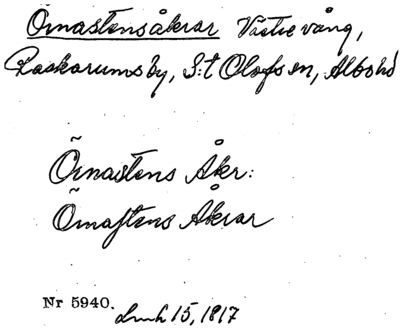 Örnastensåkrar Västre vång,
Raskarums by, S:t Olofs sn, Albo hd
Örnastens Åkr:
Örnastens Åkrar
Nr 5940. 15, 1817